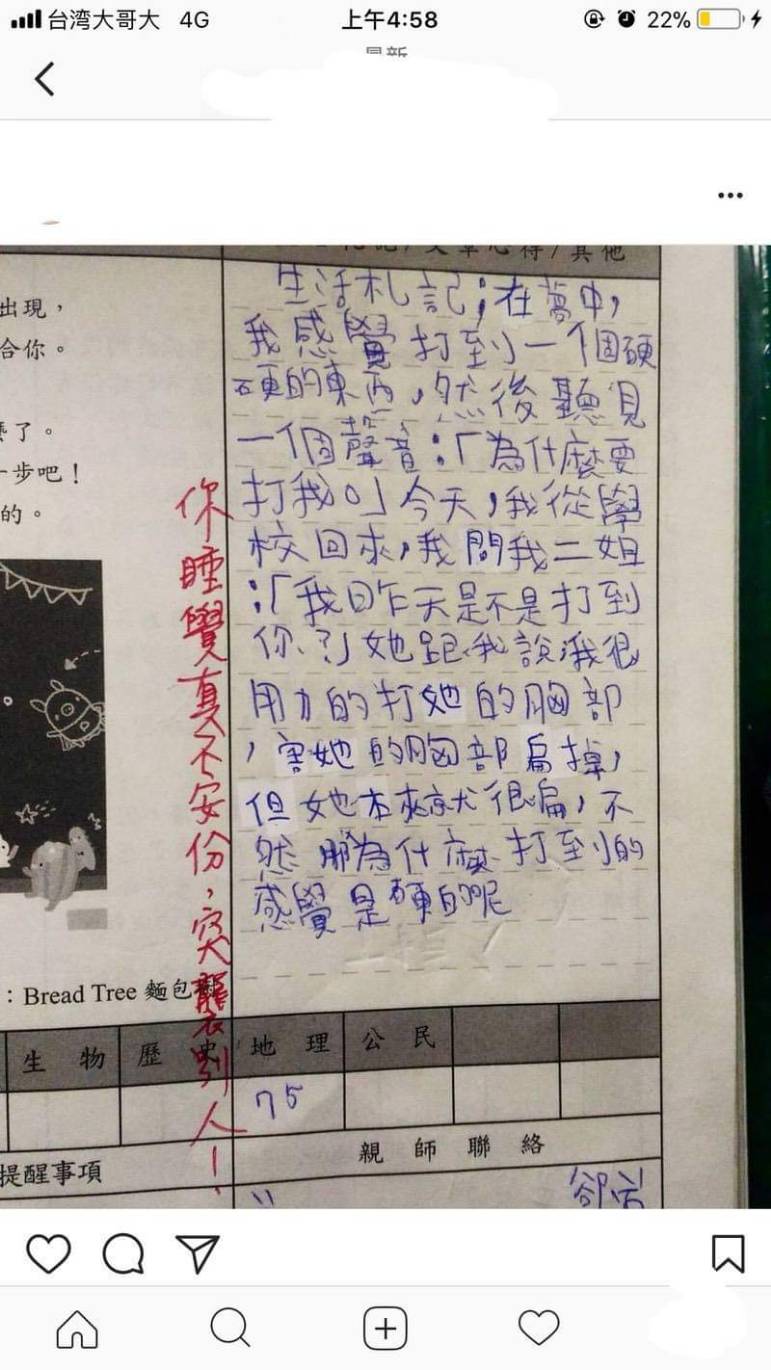 台湾大哥大 4G 上午4:58 22%
最新
出現，
合你。
麼了。
一步吧！
的。
心得/其他
生活札記；在夢中，
我感覺打到一個硬
硬的東西，然後聽見
一個聲音：「為什麼要
打我。」今天，我從學
校回來，我問我二姐
：「我昨天是不是打到
你？」她跟我說我很
用力的打她的胸部
，害她的胸部扁掉，
但她本來就很扁，不
然那為什麼打到的
感覺是硬的呢
你睡覺真不安份，突襲別人！
：Bread Tree 麵包樹
生物 歷史 地理 公民
75
提醒事項 親師聯絡